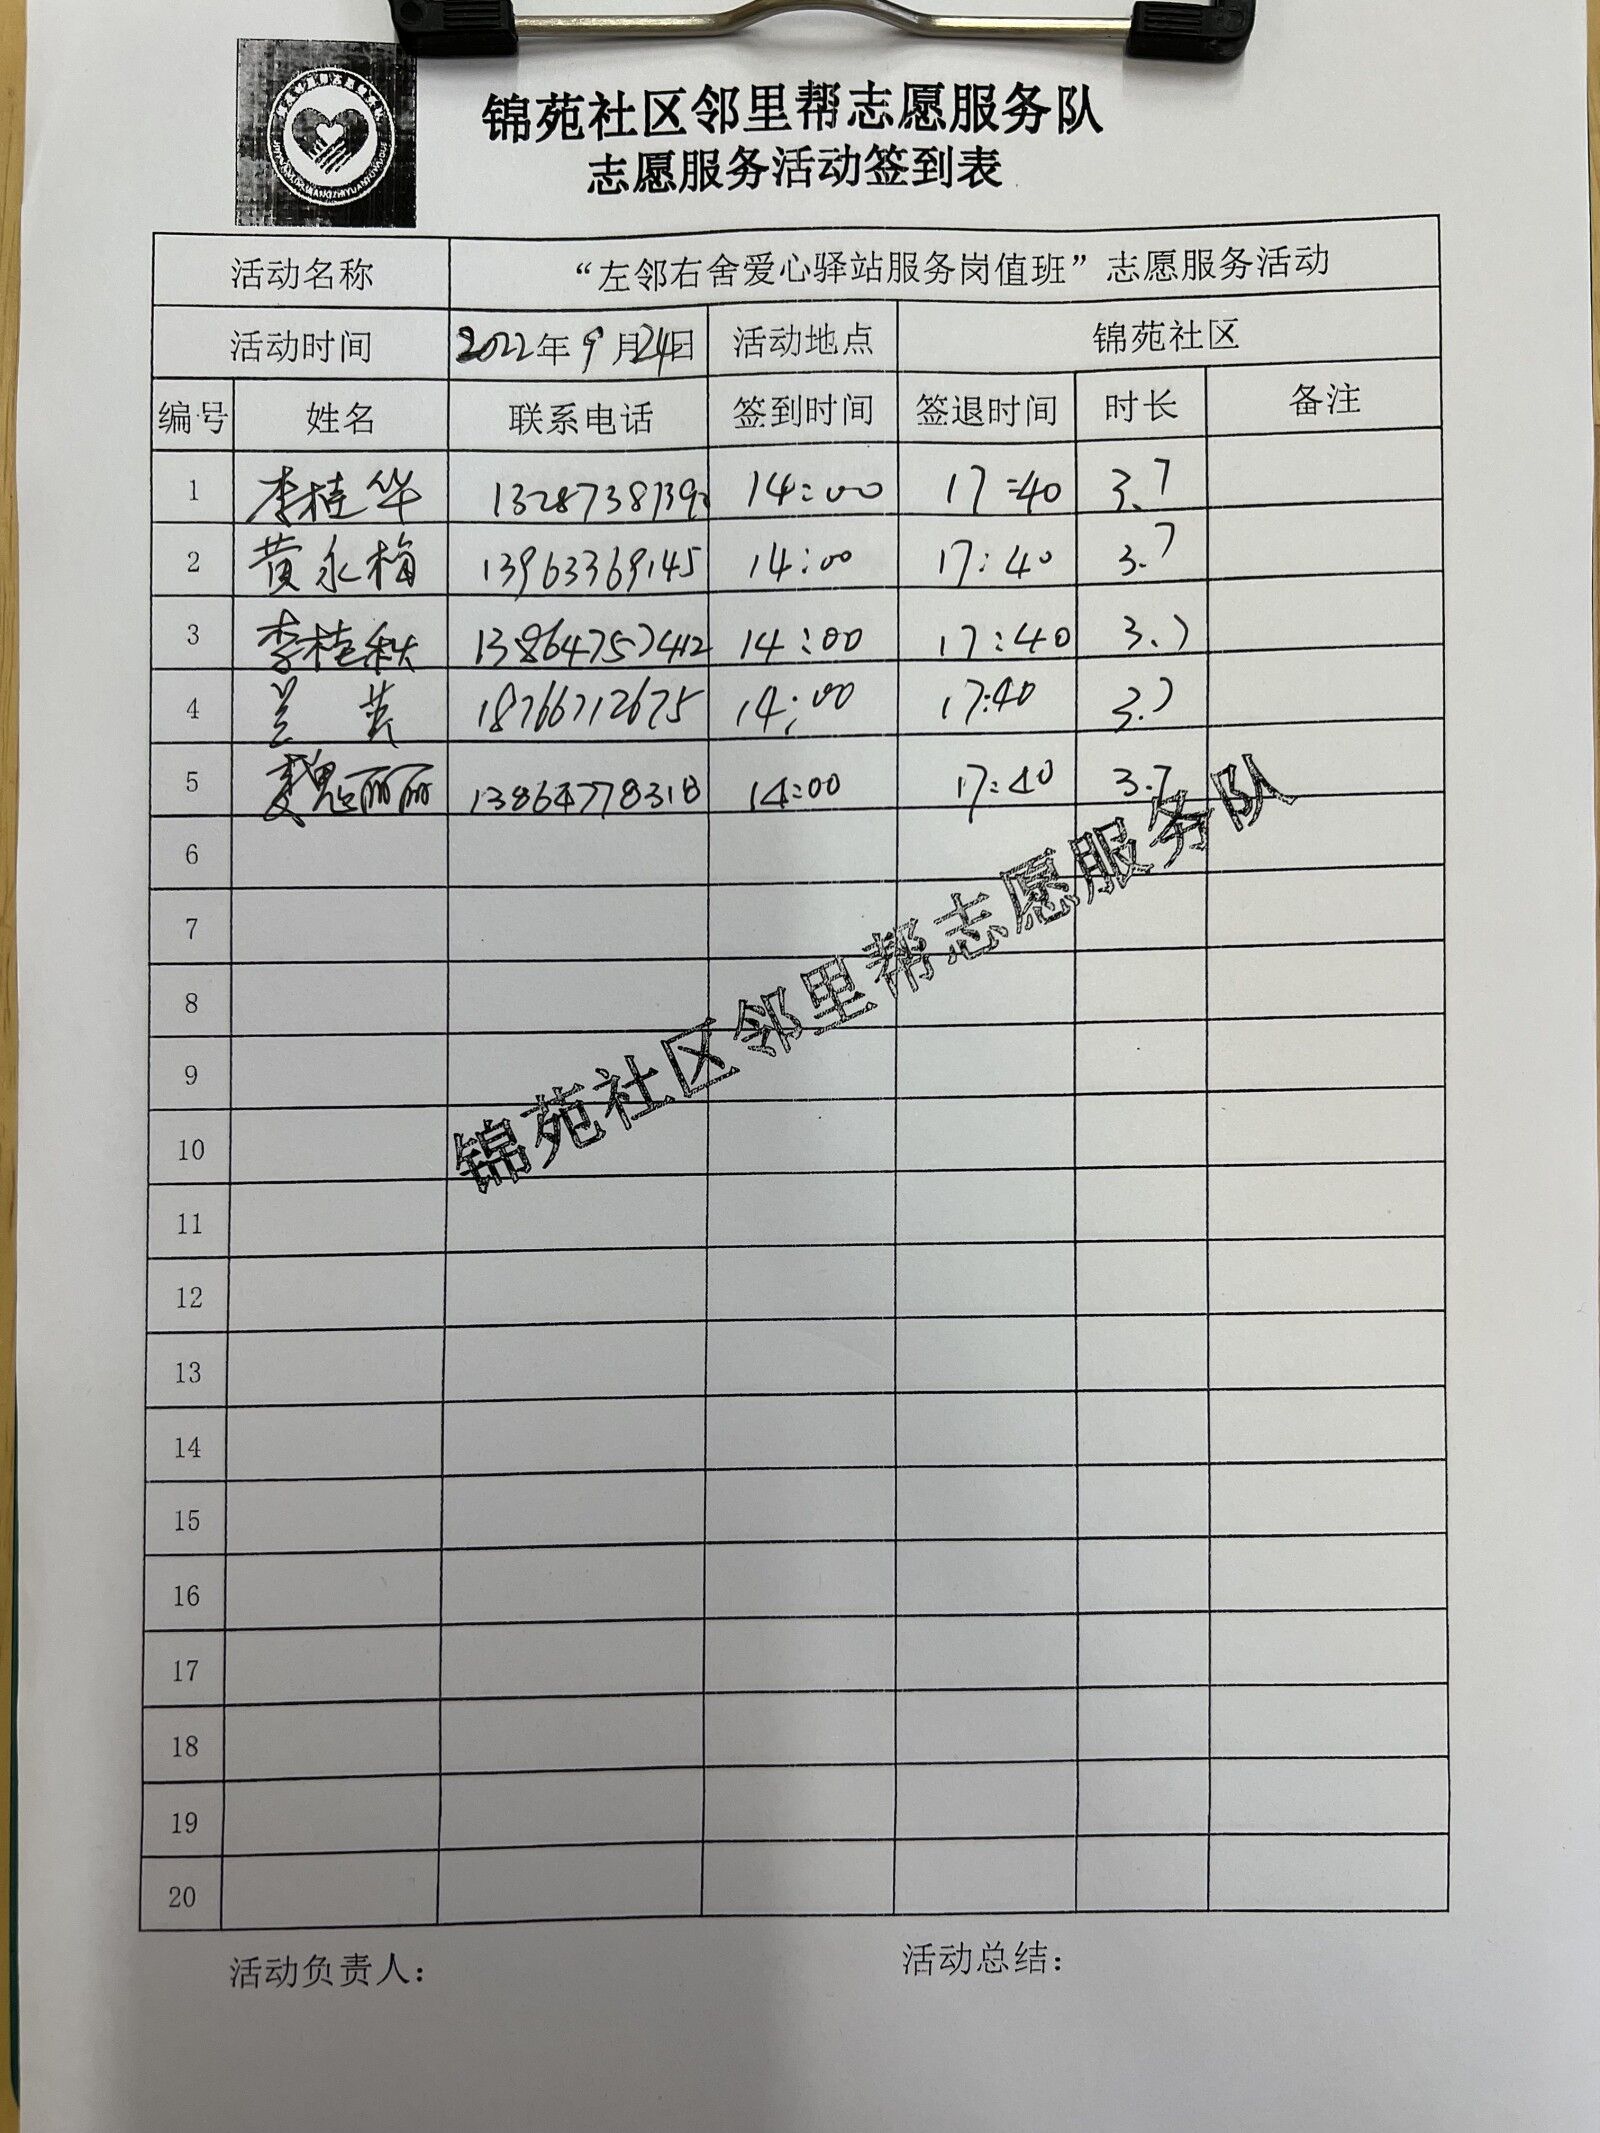 锦苑社区邻里帮志愿服务队
志愿服务活动签到表
活动名称 “左邻右舍爱心驿站服务岗值班”志愿服务活动
活动时间 2022年9月24日 活动地点 锦苑社区
编号 姓名 联系电话 签到时间 签退时间 时长 备注
1 李桂华 14:00 17:40 3.7
2 黄永梅 13963369145 14:00 17:40 3.7
3 李桂秋 13864757412 14:00 17:40 3.7
4 兰 18766712675 14:00 17:40 3.7
5 魏丽丽 13864778318 14:00 17:40 3.7
6
7
8
9
10
11
12
13
14
15
16
17
18
19
20
锦苑社区邻里帮志愿服务队
活动负责人： 活动总结：